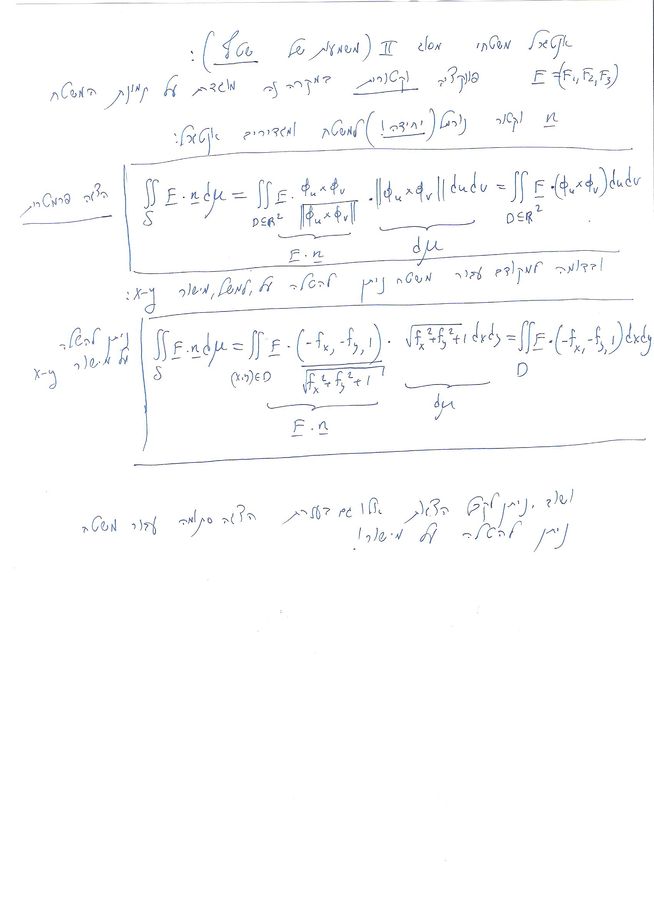 אינטגרל משטחי מסוג II (משמעות של שטף):
F=(F₁,F₂,F₃) פונקציה וקטורית במקרה זה מוגדת על קמינת המשטח
n וקטור נורמל (יחידה!) למשטח ומגדירים אינטגרל:
הצגה פרמטרית
∬_S F·n dμ = ∬_{D⊆R²} F· (ϕᵤ×ϕᵥ)/‖ϕᵤ×ϕᵥ‖ · ‖ϕᵤ×ϕᵥ‖ du dv = ∬_{D⊆R²} F·(ϕᵤ×ϕᵥ) du dv
F·n dμ
ובדומה למקודם עבור משטח ניתן להטלה על, למשל, מישור x-y:
ניתן להטלה על מישור x-y
∬_S F·n dμ = ∬_{(x,y)∈D} F· (-fₓ,-f_y,1)/√(fₓ²+f_y²+1) · √(fₓ²+f_y²+1) dx dy = ∬_D F·(-fₓ,-f_y,1) dx dy
F·n dμ
ושוב, ניתן לקבל הצגות אלו גם בעזרת הצגה סתומה עבור משטח
ניתן להטלה על מישור!